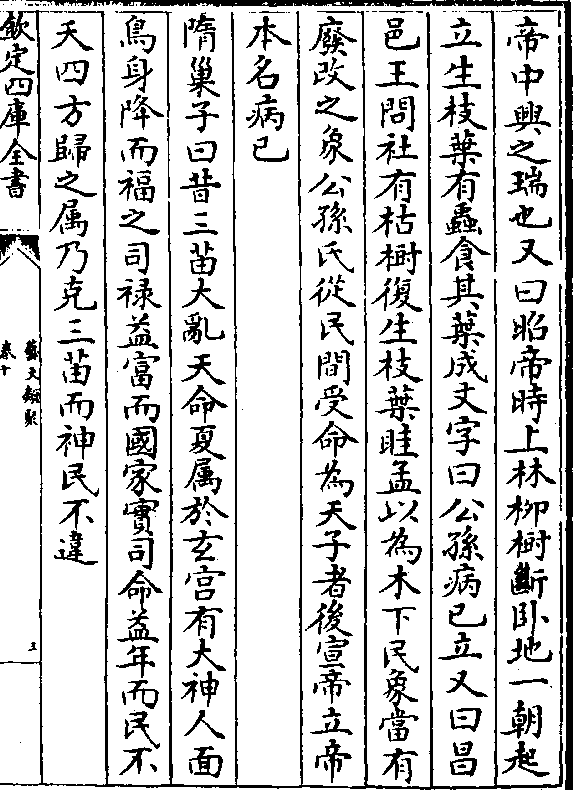 帝中興之瑞也又曰昭帝時上林柳樹斷卧地一朝起
立生枝葉有蟲食其葉成文字曰公孫病已立又曰昌
邑王間社有枯樹復生枝葉眭孟以為木下民象當有
廢改之象公孫氏從民間受命為天子者後宣帝立帝
本名病已
隋巢子曰昔三苗大亂天命夏属於玄宫有大神人面
鳥身降而福之司禄益富而國家實司命益年而民不
夭四方歸之属乃克三苗而神民不違
欽定四庫全書
藝文類聚
卷十
五